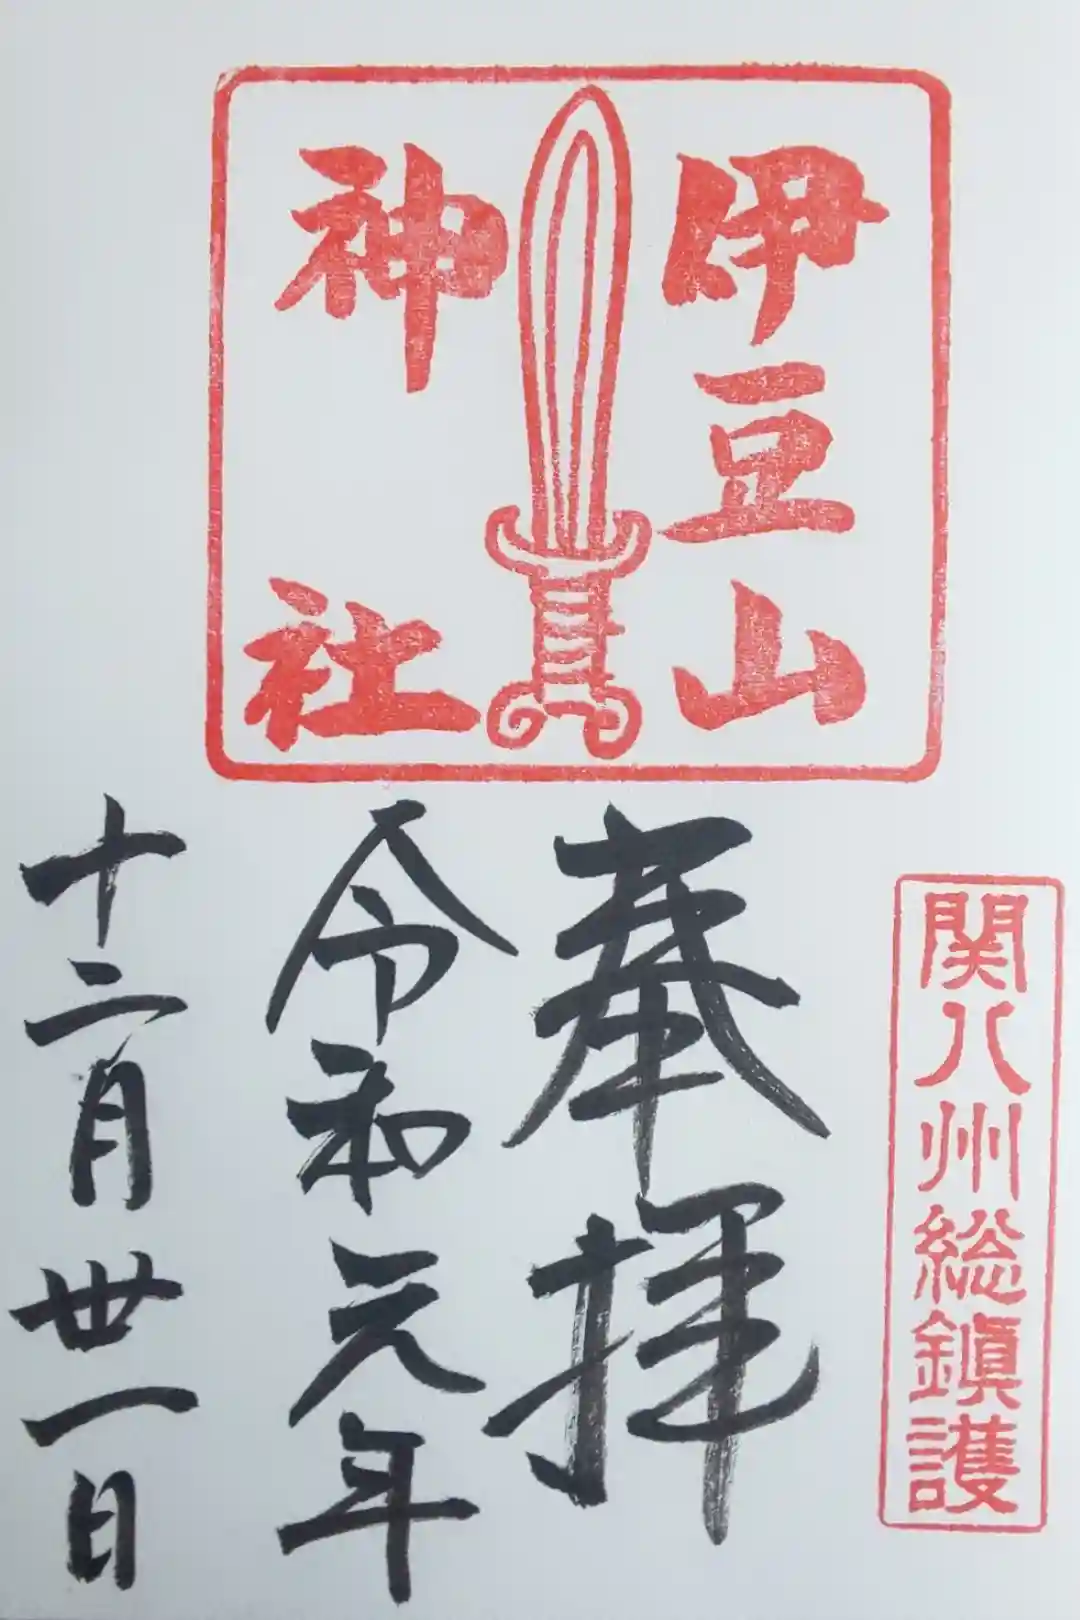 伊豆山
神社
関八州総鎮護
奉拝
令和元年
十二月丗一日